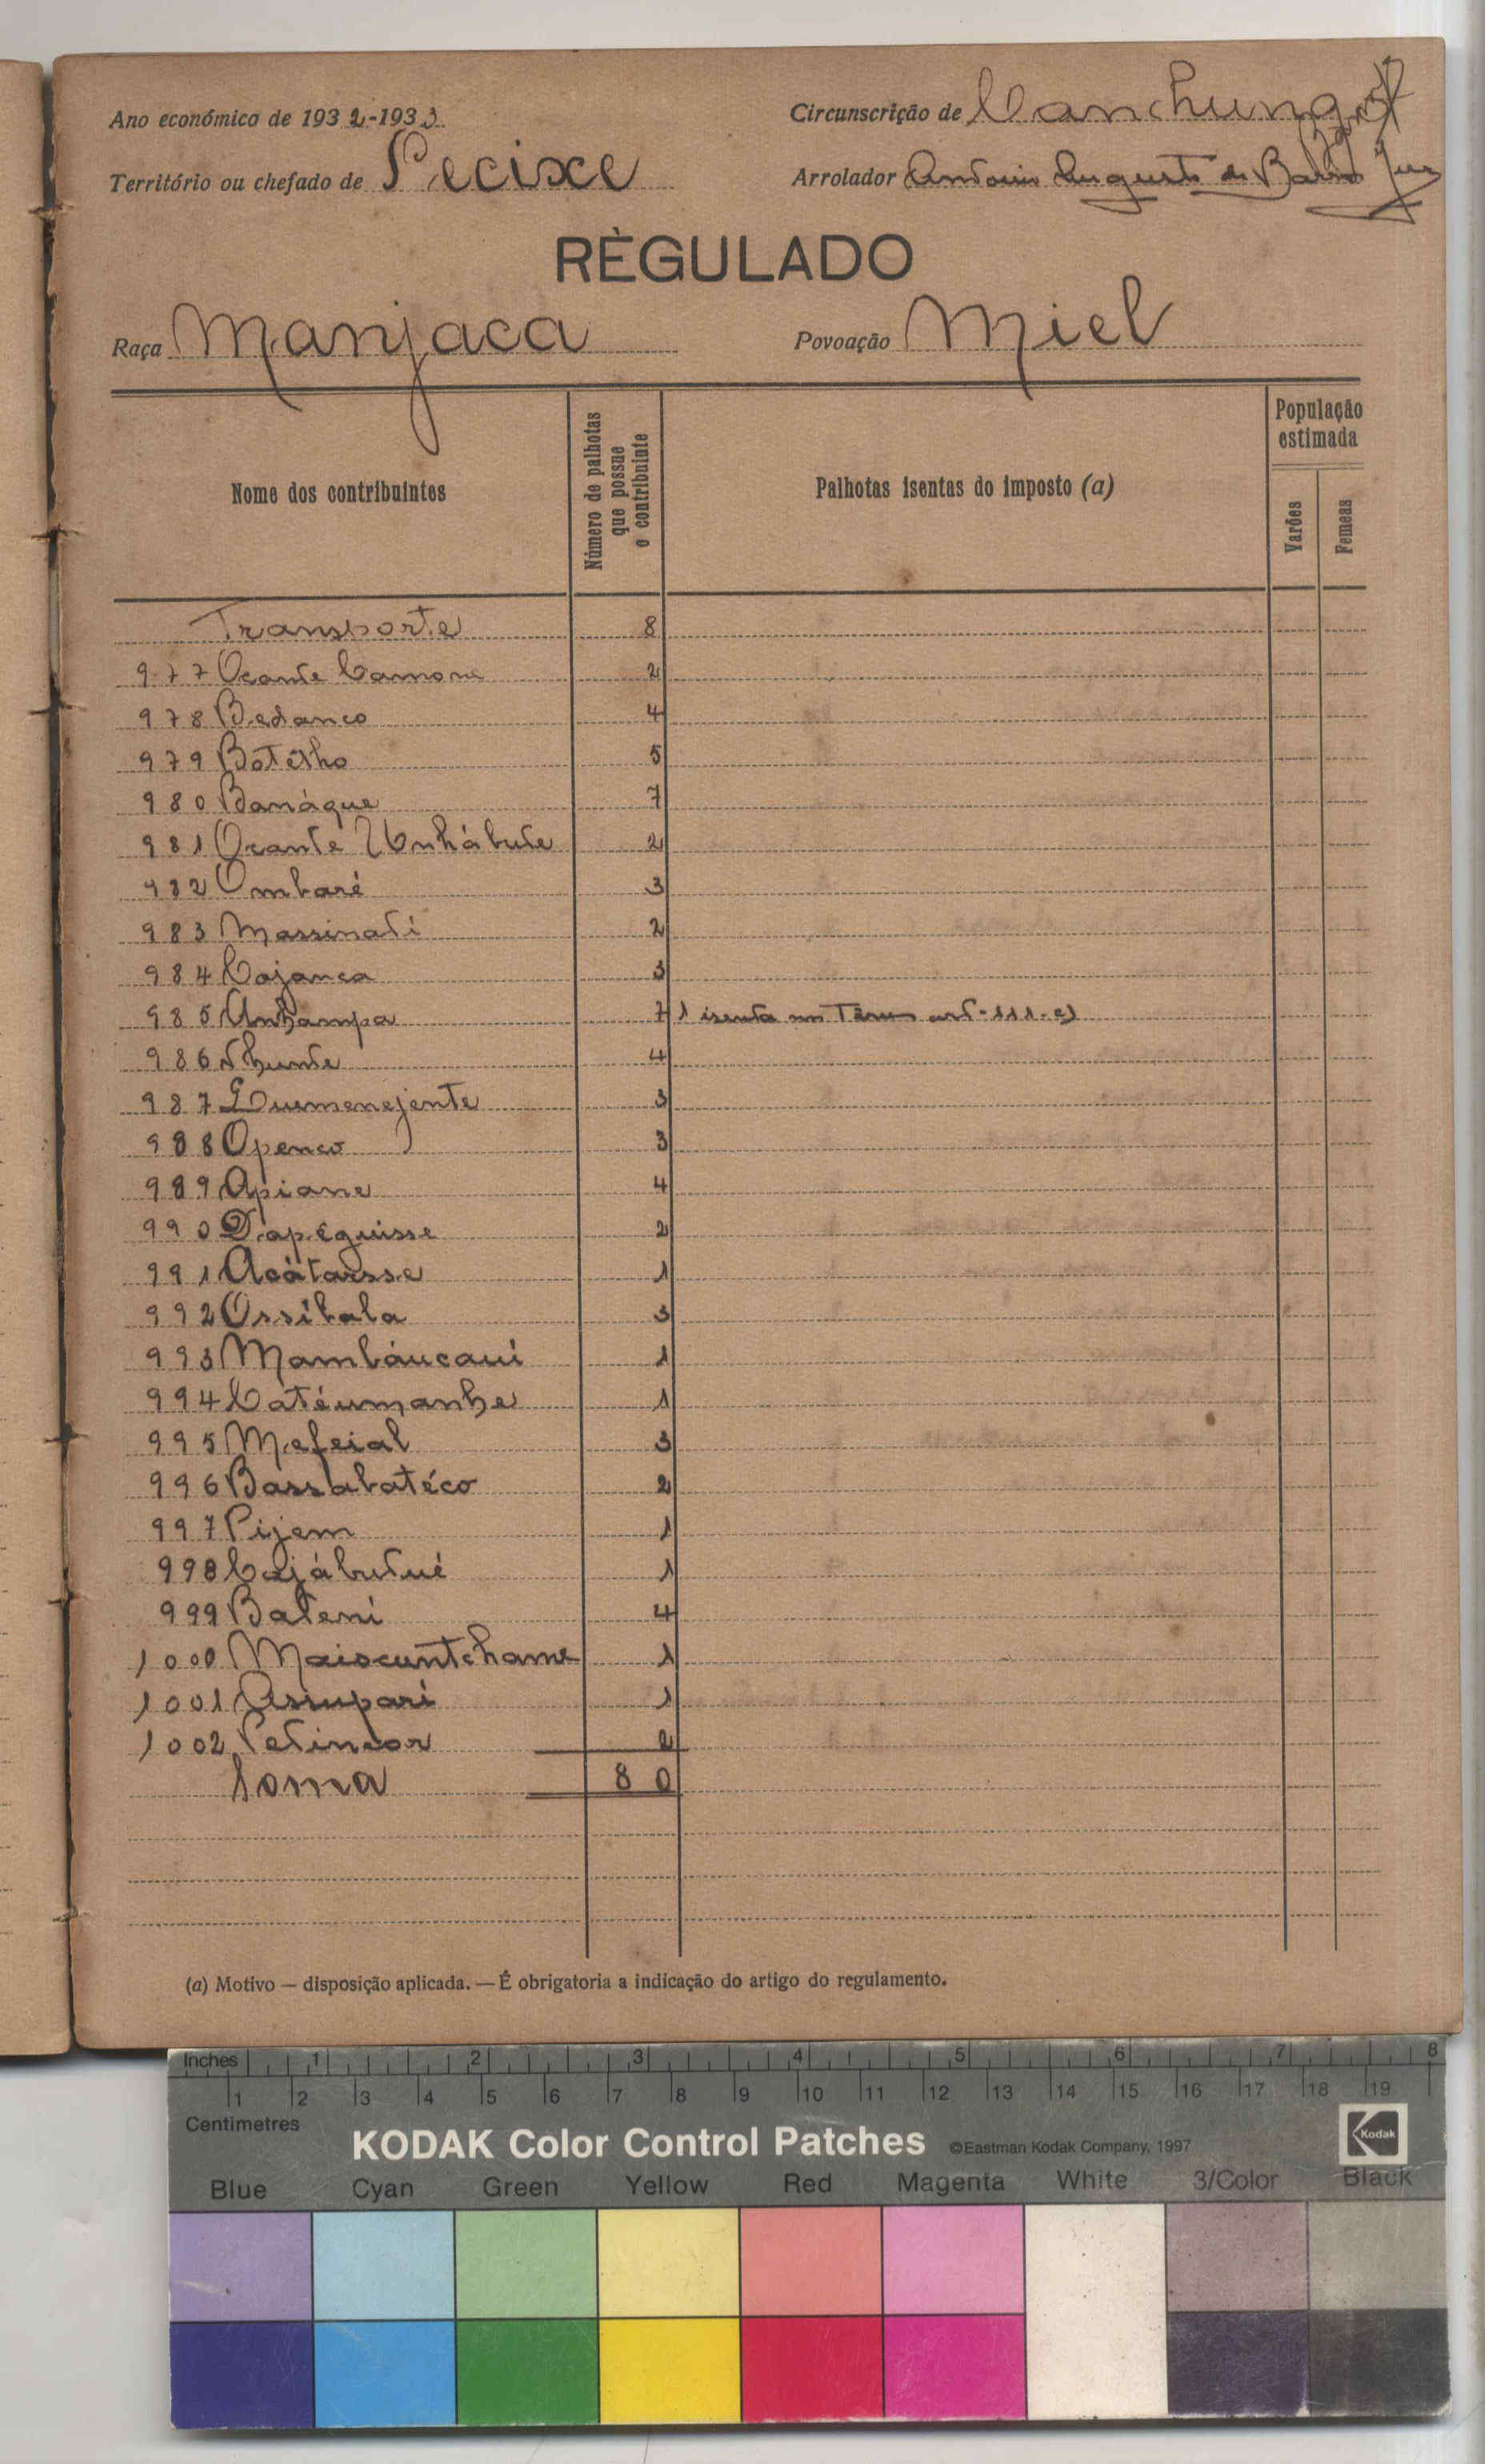 Ano económico de 1932-1933
Circunscrição de Canchungo
Território ou chefado de Pecixe
Arrolador Antonio Augusto de Barros
RÈGULADO
Raça Manjaca
Povoação Miel
Nome dos contribuintes
Número de palhotas que possue o contribuinte
Palhotas isentas do imposto (a)
População estimada
Varões
Femeas
Transporte 8
977 Ocante Camone 2
978 Bedanco 4
979 Botelho 5
980 Banáque 7
981 Ocante Unhábute 2
982 Ombaré 3
983 Massinati 2
984 Cajanca 3
985 Unhampa 7 1 isenta nos Termos art-111-e)
986 Nhunte 4
987 Quemenejente 3
988 Openco 3
989 Apiane 4
990 Dapeguisse 2
991 Acátasse 1
992 Ossibala 3
993 Mambáucaui 1
994 Catéumanhe 1
995 Mefeial 3
996 Bassabatéco 2
997 Pijem 1
998 Cajábutué 1
999 Bateni 4
1000 Maiscuntchame 1
1001 Assupari 1
1002 Petincor 2
Soma 80
(a) Motivo — disposição aplicada. — É obrigatoria a indicação do artigo do regulamento.
Inches 1 2 3 4 5 6 7 8
1 2 3 4 5 6 7 8 9 10 11 12 13 14 15 16 17 18 19
Centimetres
KODAK Color Control Patches ©Eastman Kodak Company, 1997 Kodak
Blue Cyan Green Yellow Red Magenta White 3/Color Black